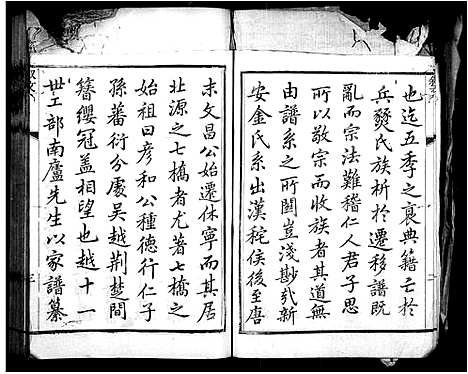 也迄五季之衰典籍亡於
兵燹氏族析於遷移譜既
亂而宗法難稽仁人君子思
所以敬宗而收族者其道無
由譜系之所關豈淺尠哉新
安金氏系出漢秺侯後至唐
末文昌公始遷休寧而其居
北源之七橋者尤著七橋之
始祖曰彦和公種德行仁子
孫蕃衍分處吴越荆楚間
簪纓冠盖相望也越十一
世工部南廬先生以家譜纂